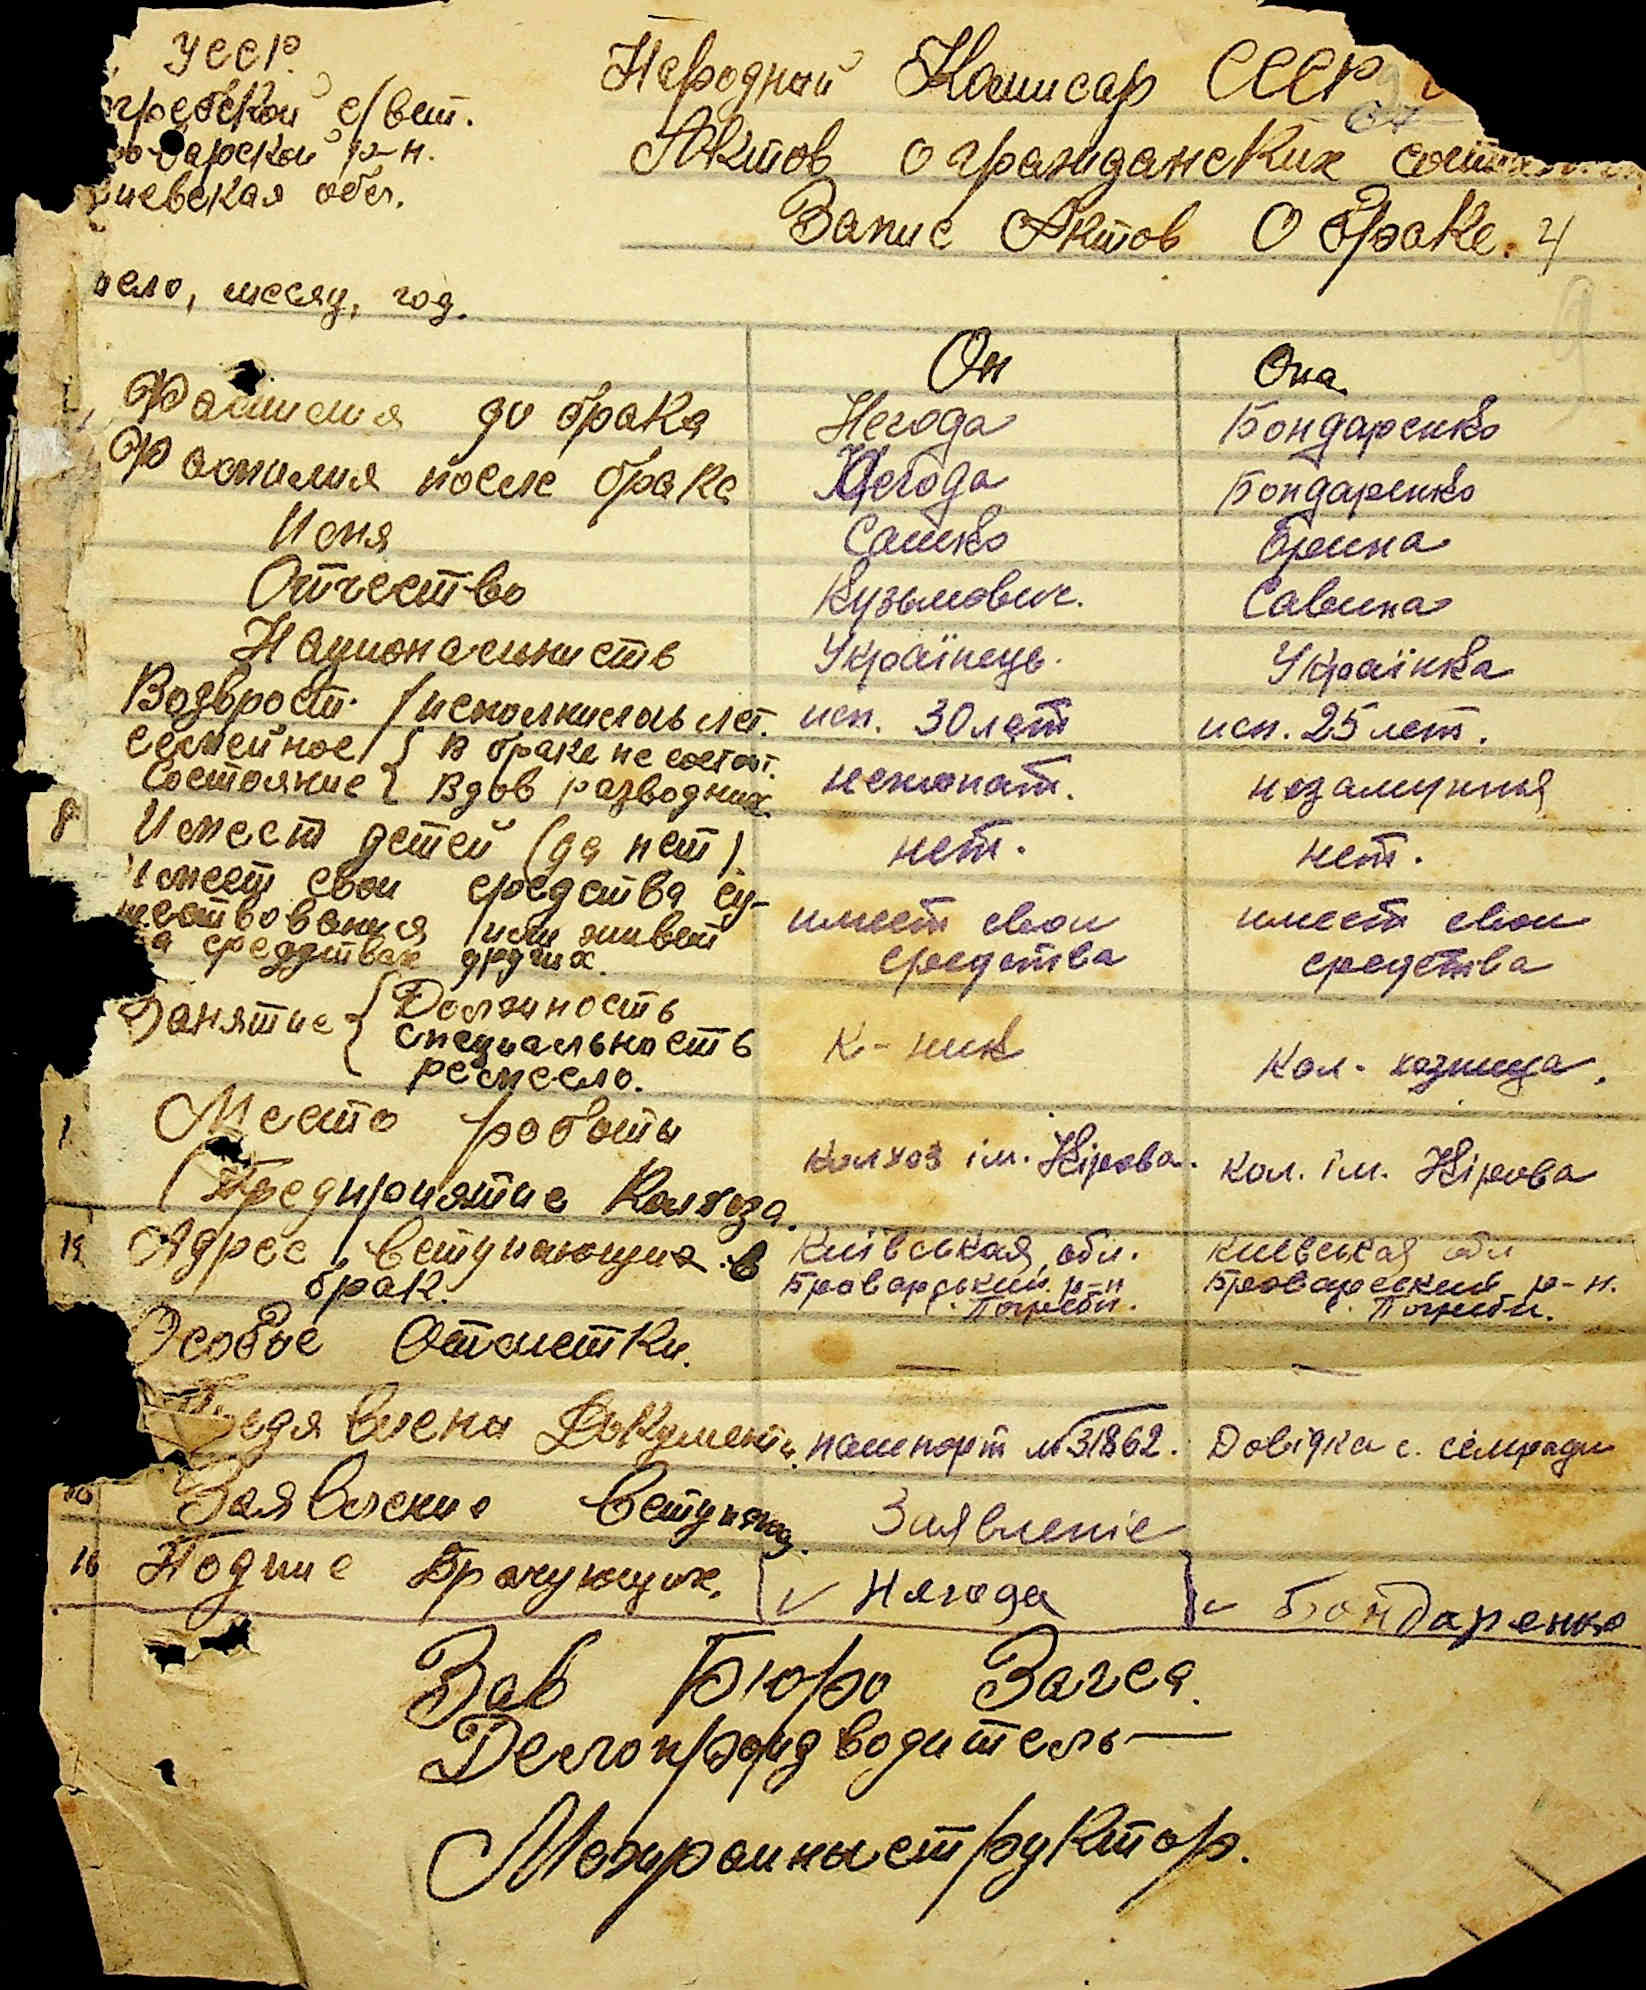 УССР.
огребской с/вет.
барской р-н.
иевская обл.
Неродний Комисар СССР
67
Актов о гражданских
Запис Актов О браке. 4
исло, месяц, год.
Он Она
Фамилия до брака Негода Бондаренко
Фамилия после брака Негода Бондаренко
Имя Сашко Ерина
Отчество Кузьмович. Савина
Национальність Українець. Українка
Возврост. /исполнилось лет. исп. 30 лет исп. 25 лет.
семейное { В браке не состоит.
Состояние { Вдов разводних нежонат. незамужня
8 Имеет детей (да нет) нет. нет.
Имеет свои средства су-
ществования или живет имеет свои имеет свои
а средствах других. средства средства
Занятие { Должность
специальность К-ник Кол-хозница.
ремесло.
1 Место роботи
(Предприятие Колхоза. Колхоз ім. Кірова. Кол. ім. Кірова
12 Адрес вступающих в Київськая обл. Київськая обл
брак. Броварський р-н Броварський р-н.
с. Погреби. с. Погреби.
Особые Отметки. — —
Предявлены Документи. пашпорт №31862. Довідка с. сільради
Заявление вступающ. Заявленіе
16 Подпис Брачующих. Нягода Бондаренко
Зав Бюро Загса.
Делопроизводитель —
Межрайныструктор.